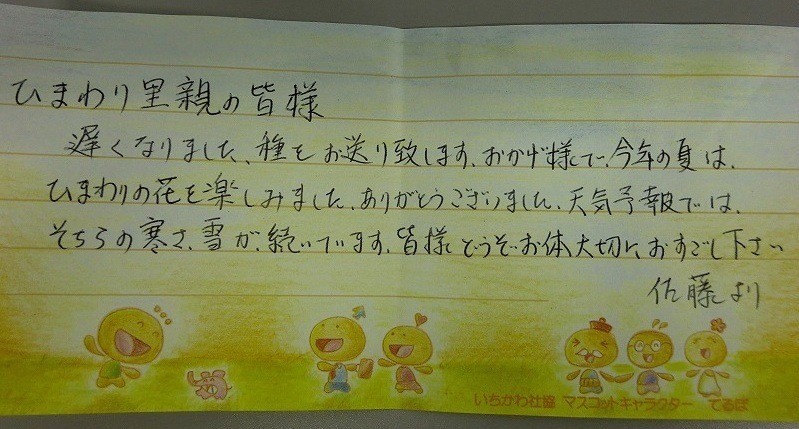 ひまわり里親の皆様
遅くなりました、種をお送り致します。おかげ様で、今年の夏は、
ひまわりの花を楽しみました。ありがとうございました。天気予報では、
そちらの寒さ、雪が、続いています。皆様どうぞお体大切に、おすごし下さい
佐藤より
いちかわ社協 マスコットキャラクター てるぼ